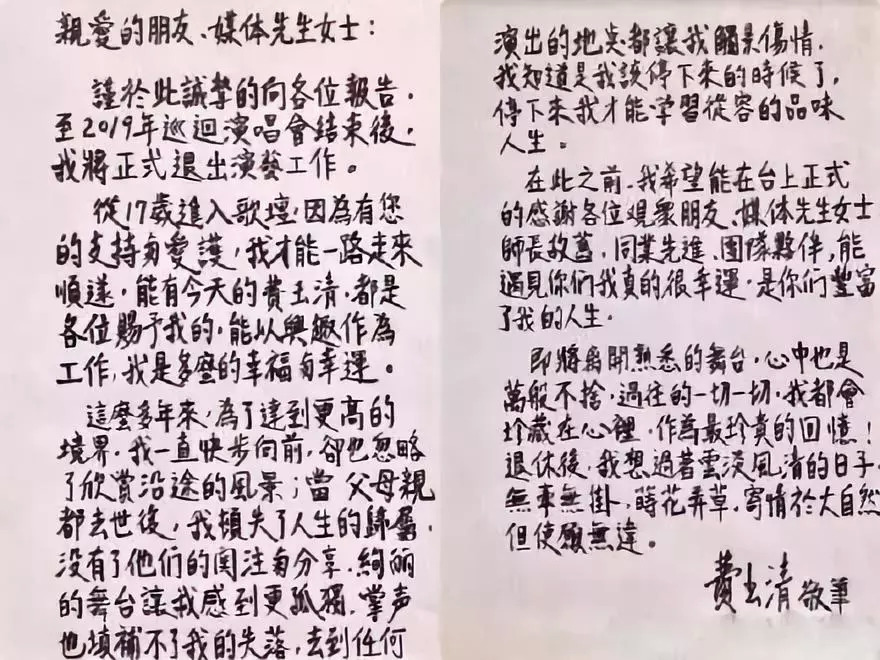 親愛的朋友、媒体先生女士：
謹於此誠摯的向各位報告，
至2019年巡迴演唱會結束後，
我將正式退出演藝工作。
從17歲進入歌壇，因為有您
的支持与愛護，我才能一路走來
順遂，能有今天的費玉清，都是
各位賜予我的，能以興趣作為
工作，我是多麼的幸福与幸運。
這麼多年來，為了達到更高的
境界，我一直快步向前，卻也忽略
了欣賞沿途的風景；當父母親
都去世後，我頓失了人生的歸屬，
没有了他們的関注与分享，絢丽
的舞台讓我感到更孤獨，掌声
也填補不了我的失落，去到任何
演出的地点都讓我觸景傷情，
我知道是我該停下來的時候了，
停下來我才能学習從容的品味
人生。
在此之前，我希望能在台上正式
的感謝各位观眾朋友、媒体先生女士
師長故舊，同業先進、團隊夥伴，能
遇見你們我真的很幸運，是你們豐富
了我的人生，
即將离開熟悉的舞台，心中也是
萬般不捨，過往的一切一切，我都會
珍藏在心裡，作為最珍貴的回憶！
退休後，我想過著雲淡風清的日子，
無牽無掛，蒔花弄草，寄情於大自然
但使願無違。
費玉清 敬筆